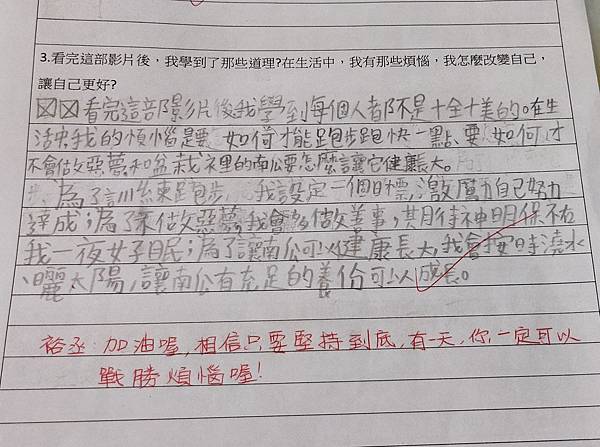 3.看完這部影片後，我學到了那些道理?在生活中，我有那些煩惱，我怎麼改變自己，
讓自己更好?
看完這部影片後我學到每個人都不是十全十美的。在生
活中我的煩惱是要如何才能跑步跑快一點、要如何才
不會做惡夢和盆栽裡的南瓜要怎麼讓它健康長大。
為了訓練東跑步，我設定一個目標，激勵自己努力
達成；為了不做惡夢，我會多做善事，期待神明保佑
我一夜好眠；為了讓南瓜可以健康長大，我會按時澆水
、曬太陽，讓南瓜有充足的養份可以成長。
裕丞 加油喔，相信只要堅持到底，有一天，你一定可以
戰勝煩惱喔！